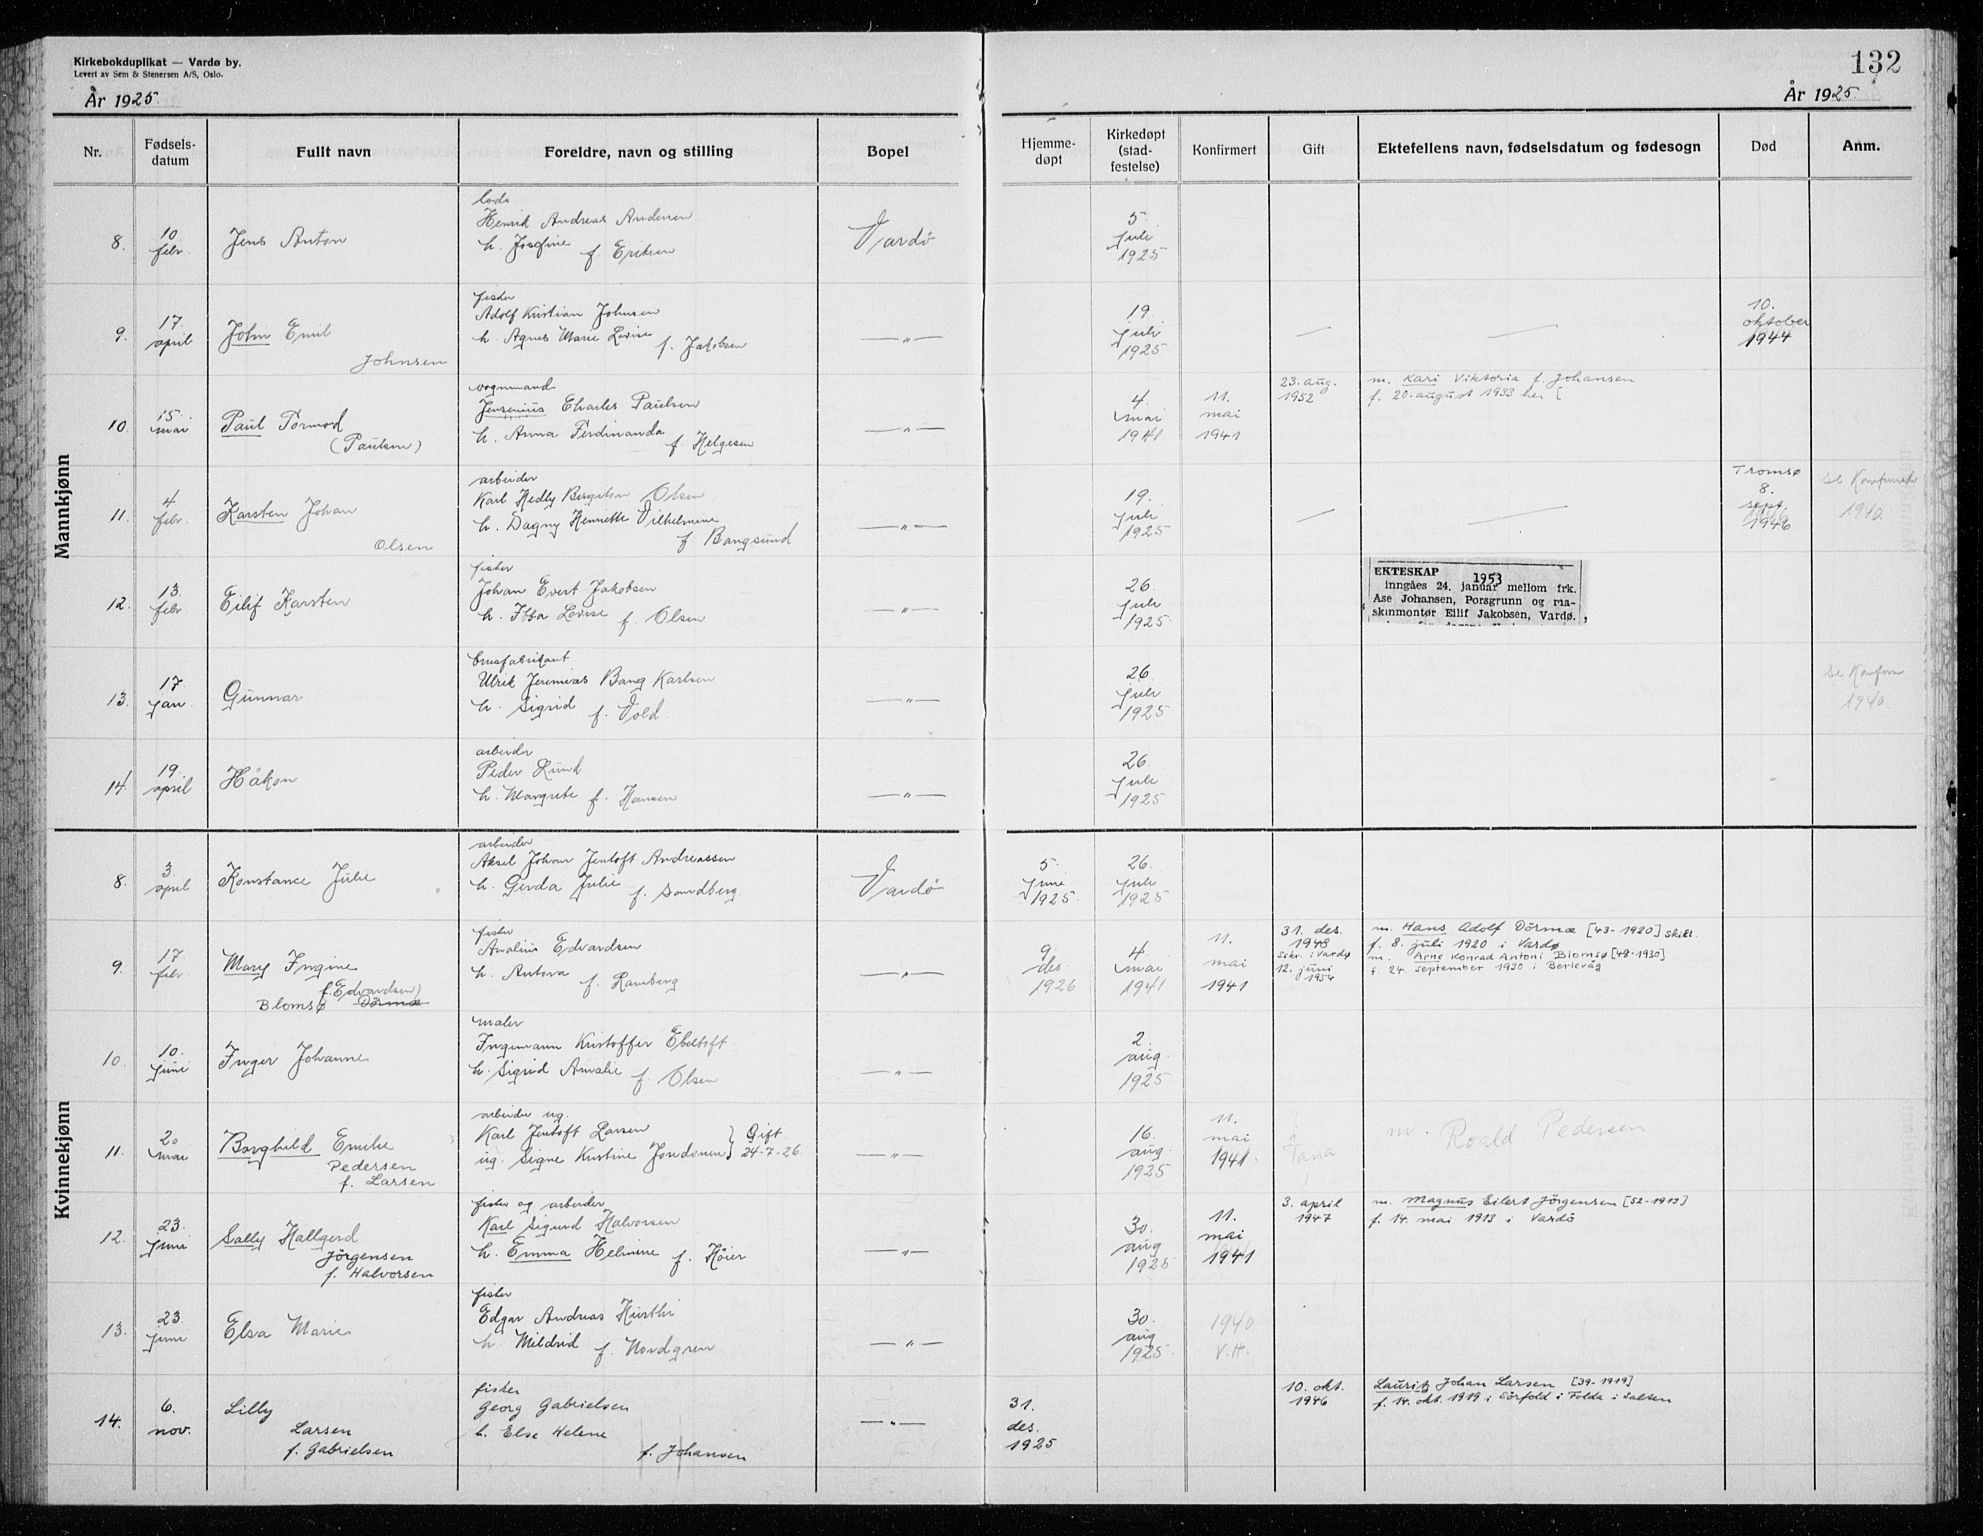 Kirkebokduplikat — Vardø by.
Levert av Sem & Stenersen A/S, Oslo.
132
År 1925.
År 1925.
Nr.
Fødsels-
datum
Fullt navn
Foreldre, navn og stilling
Bopel
Hjemme-
døpt
Kirkedøpt
(stad-
festelse)
Konfirmert
Gift
Ektefellens navn, fødselsdatum og fødesogn
Død
Anm.
Mannkjønn
8.
10
febr.
Jens Anton
Henrik Andreas Andersen
h. Josefine f. Eriksen
Vardø
5.
juli
1925
9.
17.
april
John Emil
Johnsen
fisker
Adolf Kristian Johnsen
h. Agnes Marie Lovise f. Jakobsen
—"—
19.
juli
1925
—
—
10.
oktober
1944
10.
15.
mai
Paul Tormod
(Paulsen)
vognmand
Jensenius Charles Paulsen
h. Anna Ferdinanda f. Helgesen
—"—
4.
mai
1941
11.
mai
1941
23. aug.
1952
m. Kari Viktoria f. Johansen
f. 20. august 1933 her [
11.
4
febr.
Karsten Johan
Olsen
arbeider
Karl Hedly Bergiton Olsen
h. Dagny Henriette Vilhelmine
f. Bangsund
—"—
19.
juli
1925
—
—
Tromsø
8.
sept.
1946
1940
12.
13.
febr
Eilif Karsten
fisker
Johan Evert Jakobsen
h. Lovise f. Olsen
—"—
26
juli
1925
EKTESKAP 1953
inngåes 24. januar mellom frk.
Ase Johansen, Porsgrunn og ma-
skinmontør Eilif Jakobsen, Vardø.
13.
17.
jan
Gunnar
brusfabrikant
Ulrik Jeremias Bang Karlsen
h. Sigrid f. Vold
—"—
26.
juli
1925
1940
14.
19.
april
Håkon
arbeider
Peder Lund
h. Margrete f. Hansen
—"—
26.
juli
1925
Kvinnekjønn
8.
3.
april
Konstance Julie
arbeider
Aksel Johan Jentoft Andreassen
h. Gerda Julie f. Sandberg
Vardø
5.
juni
1925
26.
juli
1925
9.
17.
febr
Mary Ingine
f. Edvardsen)
Blomsø Dörmæ
fisker
Analius Edvardsen
h. Antora f. Raneberg
9
des.
1926
4
mai
1941
11.
mai
1941
31. des.
1948
Skr. i Vardø
12. juni
1954
m. Hans Adolf Dörmæ [43-1920] skilt.
f. 8. juli 1920 i Vardø
m. Arne Konrad Antoni Blomsø [48-1930]
f. 24. september 1930 i Berlevåg
10.
10.
juni
Inger Johanne
maler
Ingemann Kristoffer Ebeltoft
h. Sigrid Amalie f. Olsen
—"—
2.
aug.
1925
11.
20
mai
Borghild Emilie
Pedersen
f. Larsen
arbeider ug.
Karl Jentoft Larsen
ug. Signe Kristine Jondinen } Gift
24-7-26.
—"—
16.
aug.
1925
11.
mai
1941.
i
Tana
m. Roald Pedersen
12.
23.
juni
Sally Hallgerd
Jörgensen
f. Halvorsen
fisker og arbeider
Karl Sigurd Halvorsen
h. Emma Helmine f. Höier
—"—
30.
aug
1925
11.
mai
1941
3. april
1947
m. Magnus Eilert Jörgensen [52-1913]
f. 14. mai 1913 i Vardö
13.
23.
juni
Elsa Marie
fisker
Edgar Andreas Kurthi
h. Mildrid f. Nordgren
—"—
30.
aug
1925.
1940
V.H.
14.
6.
nov.
Lilly
Larsen
f. Gabrielsen
fisker
Georg Gabrielsen
h. Else Helene
f. Johansen
—"—
31.
des.
1925
10. okt.
1946
Lauritz Johan Larsen [39-1919]
f. 14. okt. 1919 i Sörfold i Folda i Salten